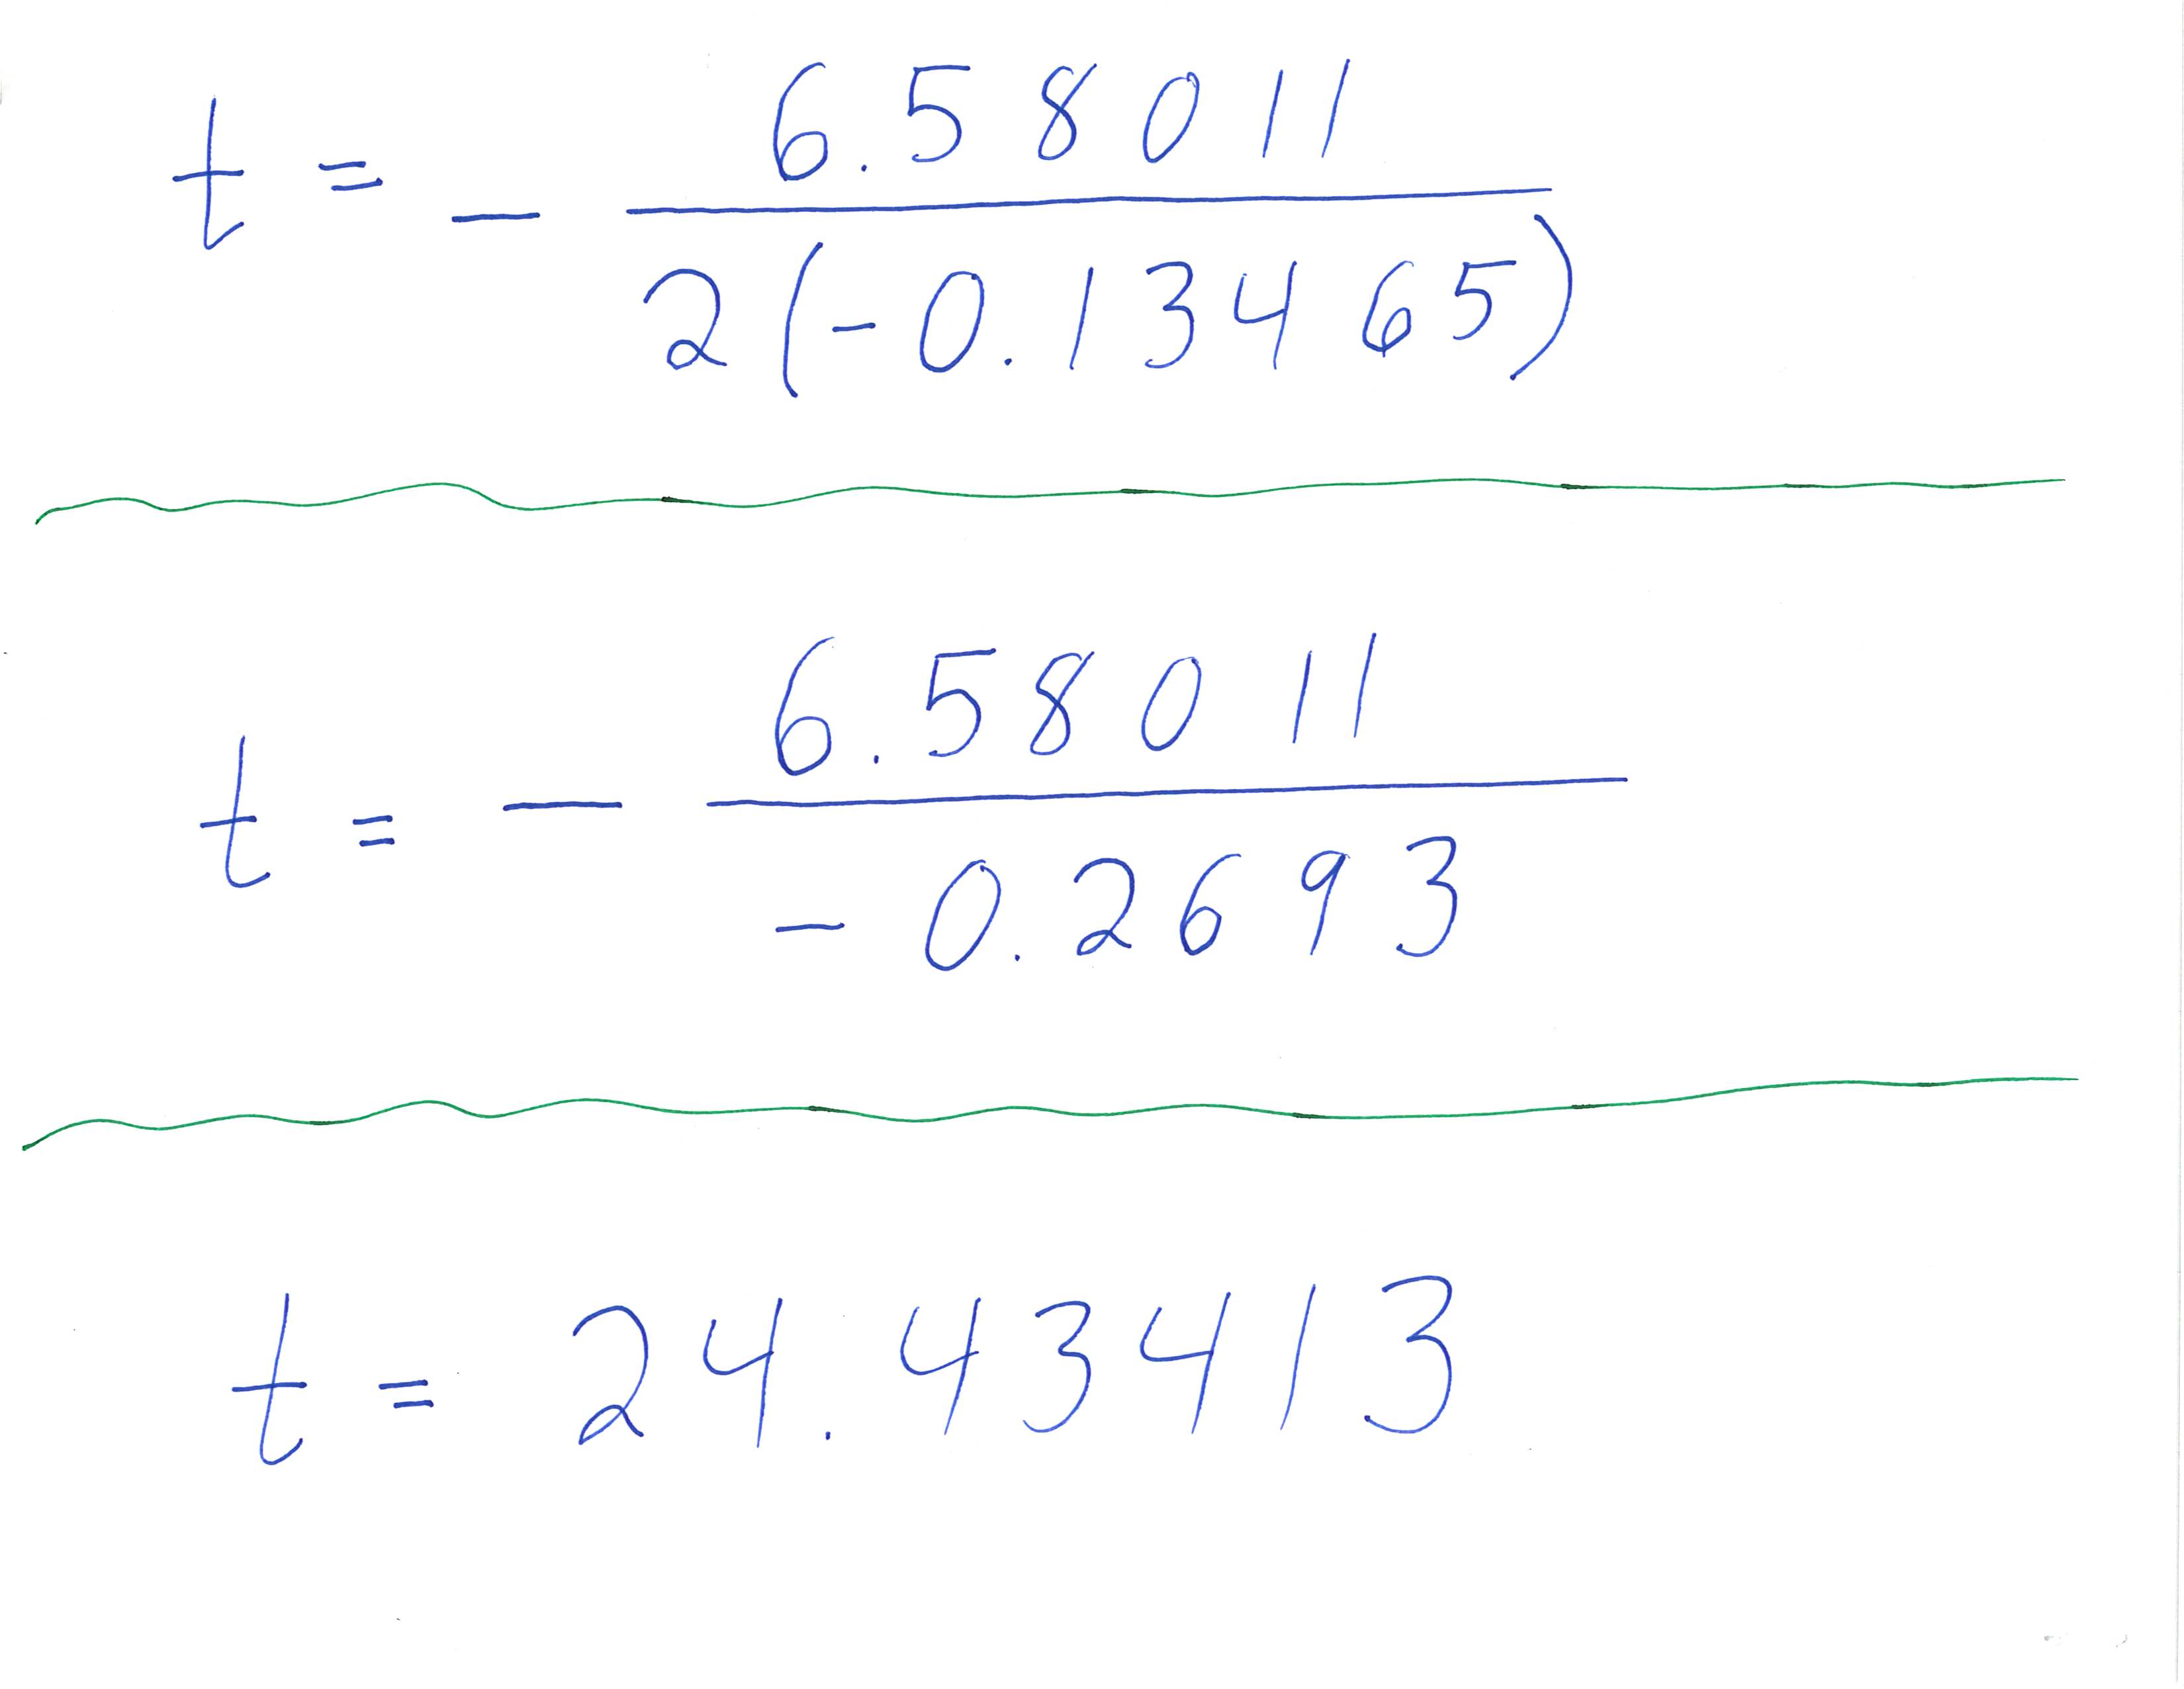 t = - 6.58011 / 2(-0.13465)
t = - 6.58011 / -0.2693
t = 24.43413